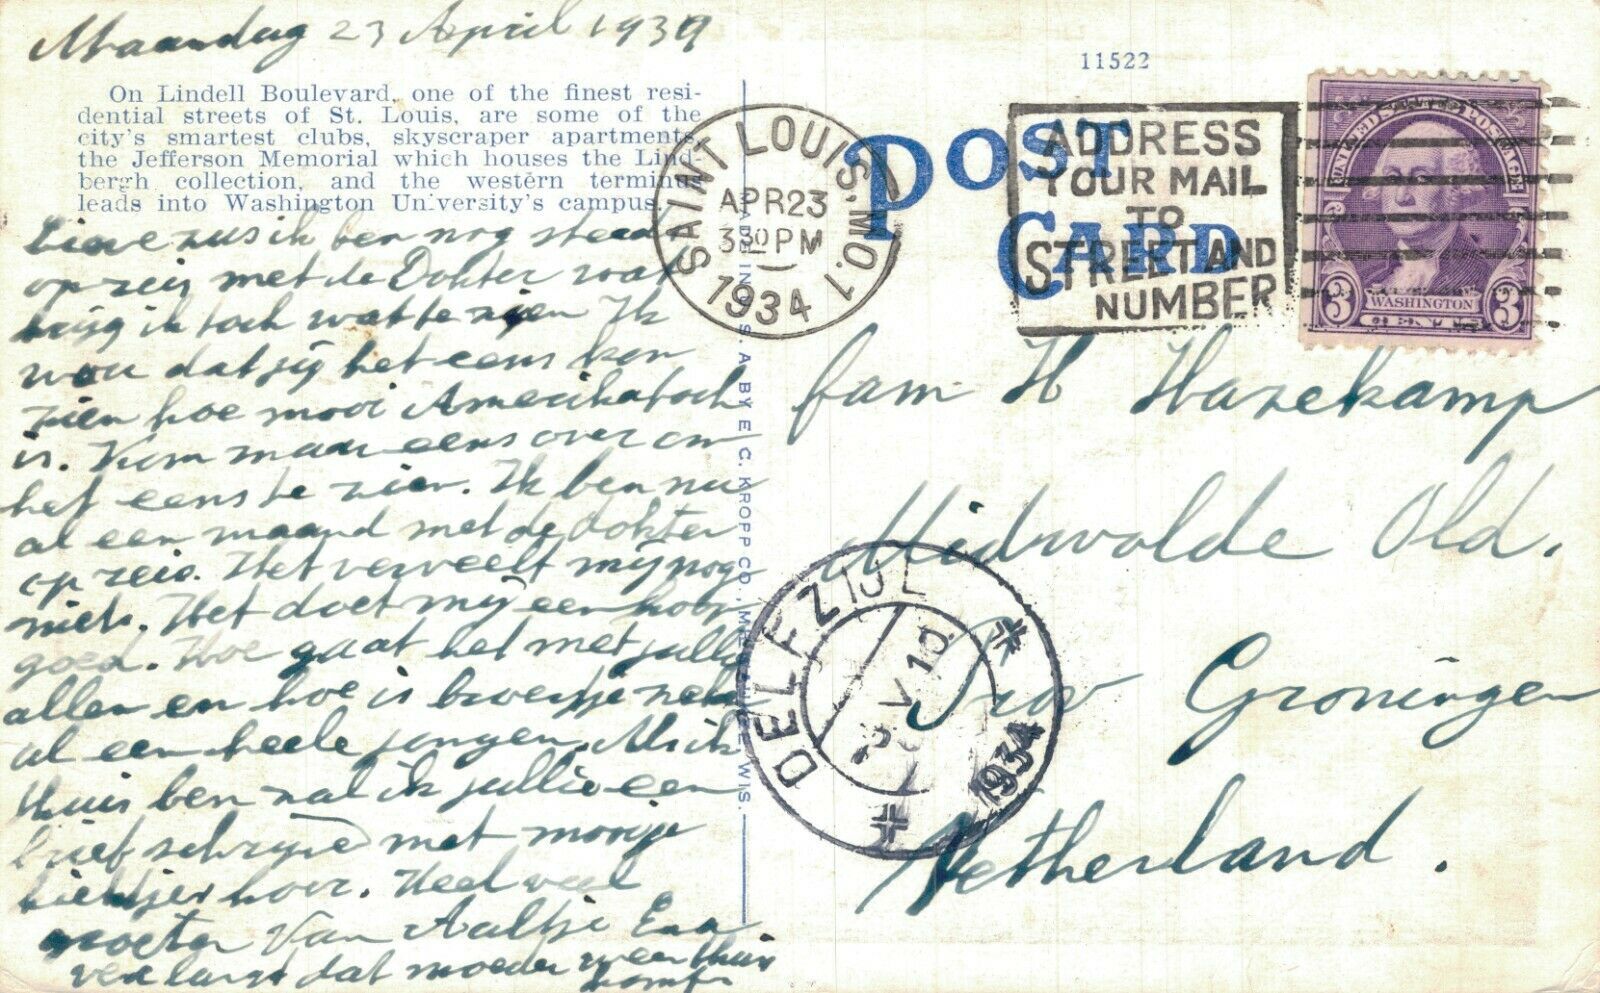 Maandag 23 April 1934
On Lindell Boulevard, one of the finest resi-
dential streets of St. Louis, are some of the
city's smartest clubs, skyscraper apartments,
the Jefferson Memorial which houses the Lind-
bergh collection, and the western terminus
leads into Washington University's campus.
Lieve zus ik ben nog steeds
op reis met de Dokter wat
krijg ik toch wat te zien Ik
wou dat jij het eens kon
zien hoe mooi Amerika toch
is. Kom maar eens over om
het eens te zien. Ik ben nu
al een maand met de Dokter
op reis. Het verveelt mij nog
niets. Het doet mij een hoop
goed. Hoe gaat het met jullie
allen en hoe is broertje zeker
al een heele jongen. Als ik
thuis ben zal ik jullie een
brief schrijven met mooije
kiektjes hoor. Heel veel
groeten Van Aaltje
verlangt dat moeder weer thuis
komt
11522
POST CARD
MADE IN U. S. A. BY E. C. KROPP CO., MILWAUKEE, WIS.
SAINT LOUIS, MO. 1
APR 23
3 30 PM
1934
ADDRESS
YOUR MAIL
TO
STREET AND
NUMBER
UNITED STATES POSTAGE
3 WASHINGTON 3
CENTS
fam H Hazekamp
Midwolde Old.
Prov Groningen
Netherland.
DELFZIJL
1934